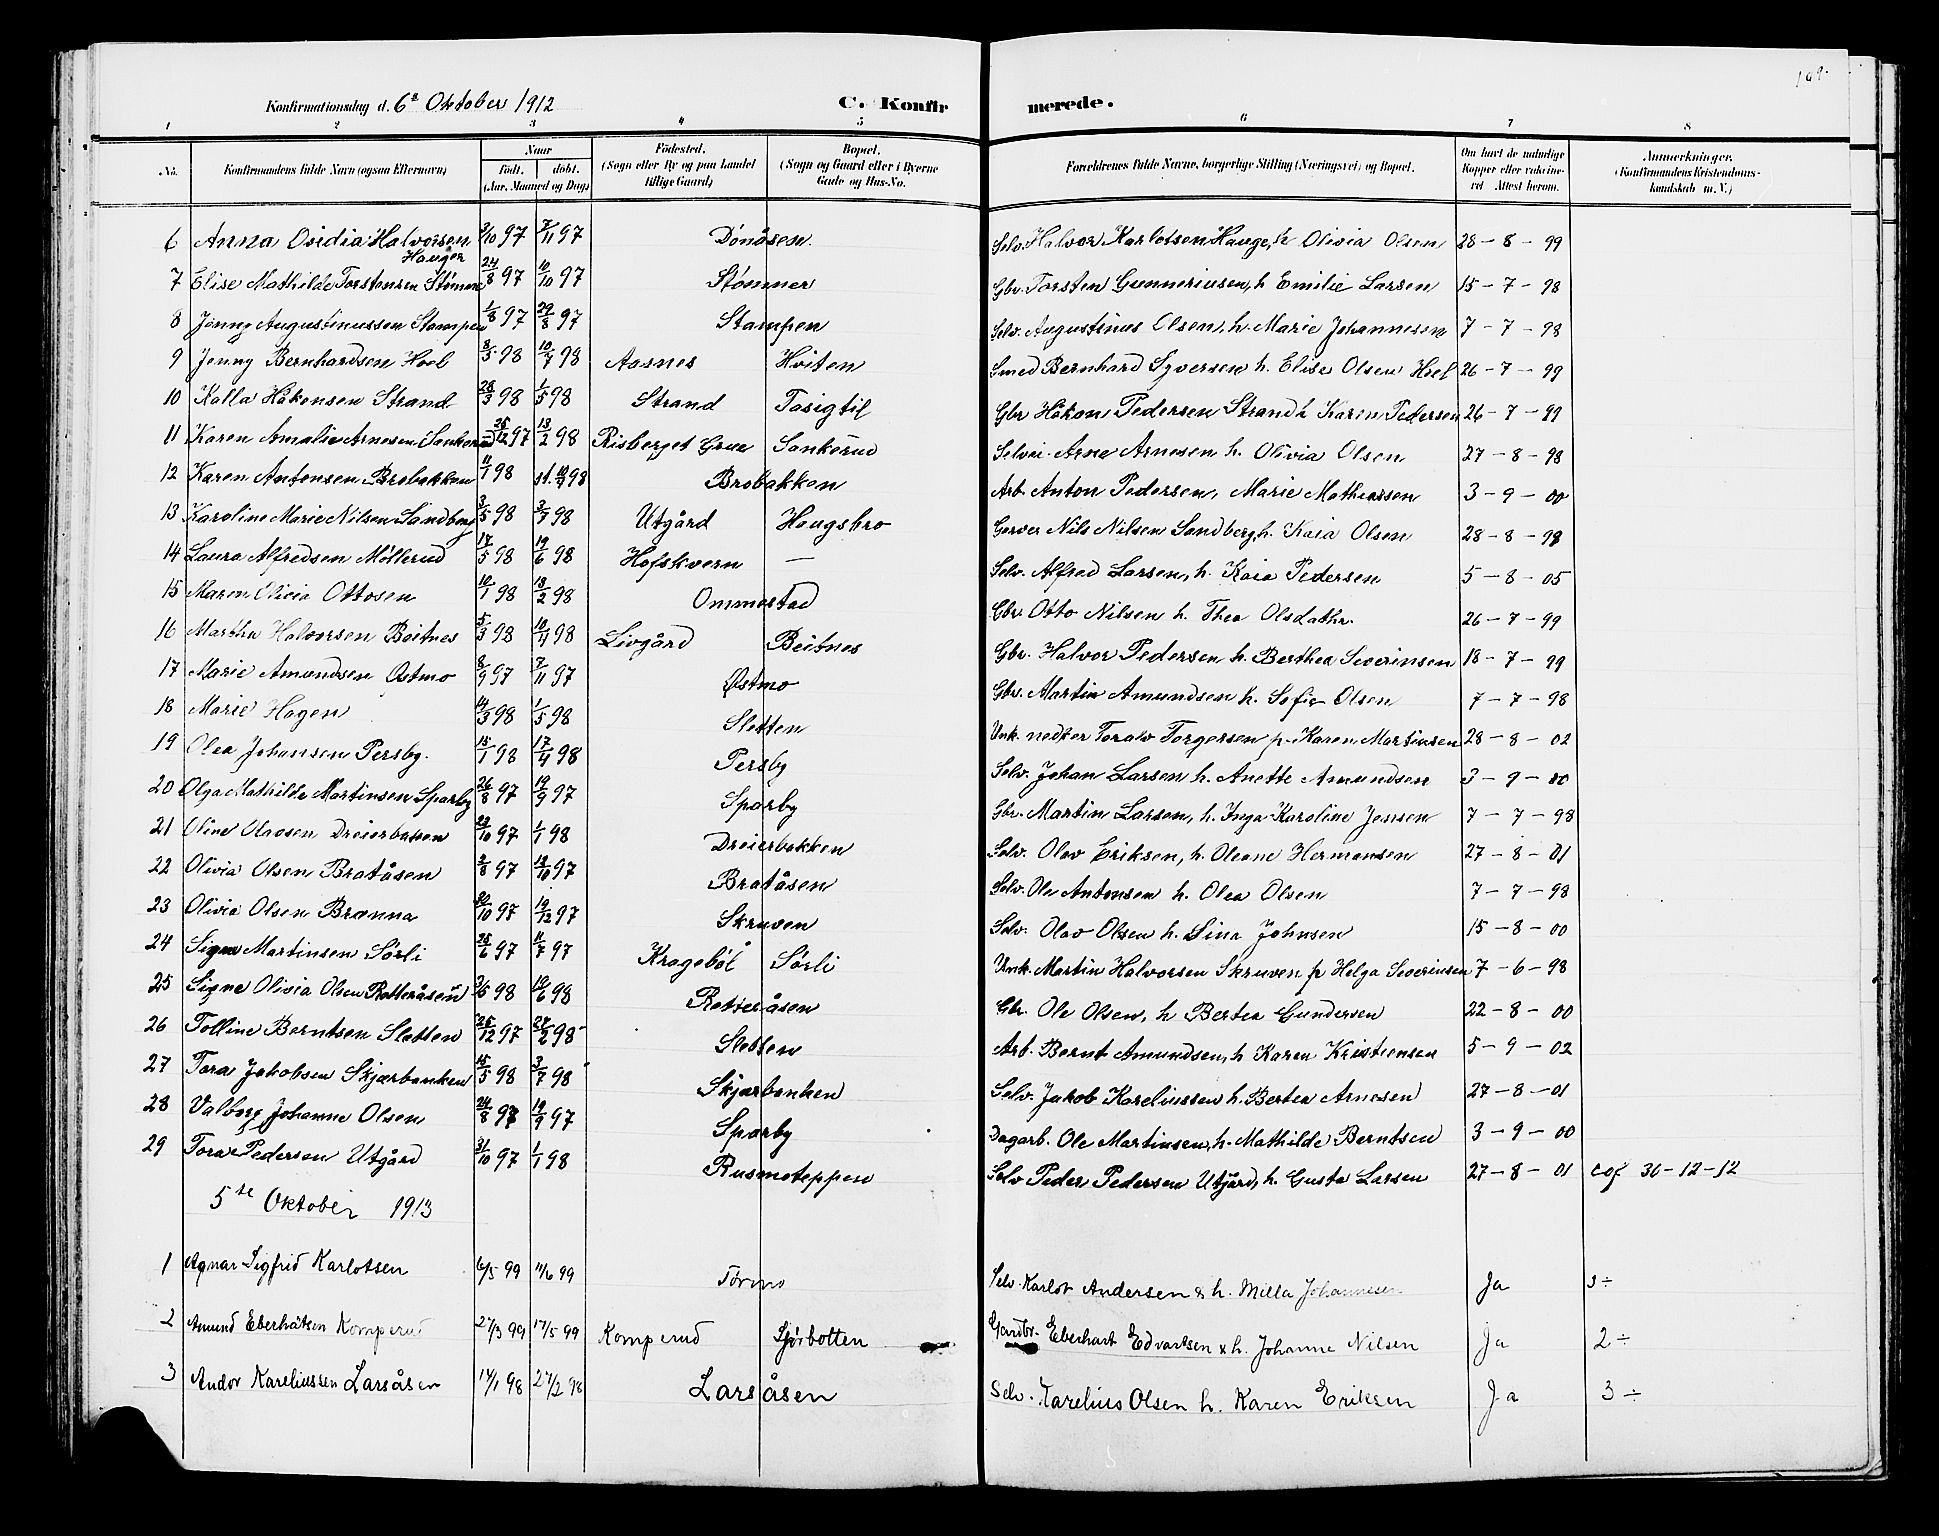 109.
Konfirmationsdag d. 6te Oktober 1912 C. Konfir merede.
1 2 3 4 5 6 7 8
No. Konfirmandens fulde Navn (ogsaa Efternavn) Naar født. døbt. (Aar, Maaned og Dag) Fødested. (Sogn eller By og paa Landet tillige Gaard) Bopæl. (Sogn og Gaard eller i Byerne Gade og Hus-No. Forældrenes fulde Navne, borgerlige Stilling (Næringsvei) og Bopæl. Om havt de naturlige Kopper eller vaccineret Attest herom. Anmerkninger. (Konfirmandens Kristendomskundskab m. V.)
6 Anna Osidia Halvorsen Hauger 2/10 97 7/11 97 Dönåsen Selv. Halvor Karlotsen Hauge, h Olivia Olsen 28-8-99
7 Elise Mathilde Torstensen Stömner 24/8 97 10/10 97 Stømner Gbr. Torsten Gunneriusen, h Emilie Larsen 15-7-98
8 Jenny Augustinussen Stampen 1/8 97 29/8 97 Stampen Selv. Augustinus Olsen, h. Marie Johannesen 7-7-98
9 Jenny Bernhardsen Hoel 3/5 98 10/7 98 Aasnes Hviten Smed Bernhard Syversen h. Elise Olsen Hoel 26-7-99
10 Kalla Håkonsen Strand 28/3 98 1/5 98 Strand Tasigtil Gbr Håkon Pedersen Strand h Karen Pedersen 26-7-99
11 Karen Amalie Arnesen Sankerud 25/12 97 13/2 98 Risberget Grue Sankerud Selvei. Arne Arnesen h. Olivia Olsen 27-8-98
12 Karen Antonsen Brobakken 11/1 98 98 Brobakken Arb. Anton Pedersen, Marie Mathiassen 3-9-00
13 Karoline Marie Nilsen Sandberg 3/5 98 3/7 98 Utgård Haugsbro Garver Nils Nilsen Sandberg, h. Kaia Olsen 28-8-98
14 Laura Alfredsen Möllerud 17/5 98 19/6 98 Hofskvern — Selv. Alfred Larsen, h. Kaia Pedersen 5-8-05
15 Maren Olivia Ottosen 10/1 98 13/2 98 Ommestad Gbr. Otto Nilsen h. Thea Olsdathr. 26-7-99
16 Martha Halvorsen Beitnes 5/3 98 10/4 98 Livgård Beitnes Gbr. Halvor Pedersen h. Berthea Severinsen 18-7-99
17 Marie Amundsen Østmo 8/9 97 7/11 97 Østmo Gbr. Martin Amundsen h. Sofie Olsen 7-7-98
18 Marie Hagen 14/3 98 1/5 98 Sletten Unk. nedker Toralv Torgersen p. Karen Martinsen 28-8-02
19 Olea Johansen Persby. 15/1 98 17/4 98 Persby Selv. Johan Larsen h. Anette Amundsen 3-9-00
20 Olga Mathilde Martinsen Sparby 26/8 97 19/9 97 Sparby Gbr. Martin Larsen, h. Inga Karoline Jensen 7-7-98
21 Oline Olavsen Dreierbakken 23/10 97 1/1 98 Dreierbakken Selv. Olav Eriksen, h. Oleane Hermansen 27-8-01
22 Olivia Olsen Bratåsen 2/8 97 10 97 Bratåsen Selv. Ole Antonsen h. Olea Olsen 7-7-98
23 Olivia Olsen Brænna 30/10 97 19/12 97 Skruven Selv. Olav Olsen h. Lina Johnsen 15-8-00
24 Signe Martinsen Sörli 25/6 97 11/7 97 Kragebøl Sørli Unk. Martin Halvorsen Skruven p Helga Severinsen 7-6-98
25 Signe Olivia Olsen Rotteråsen 98 19/6 98 Rotteråsen Gbr. Ole Olsen, h Bertea Gundersen 22-8-00
26 Tolline Berntsen Sletten 25/12 97 27/2 98 Sletten Arb. Bernt Amundsen, h Karen Kristiansen 5-9-02
27 Tora Jakobsen Skjærbanken 15/5 98 3/7 98 Skjærbanken Selv. Jakob Kareliussen h. Bertea Arnesen 27-8-01
28 Valborg Johanne Olsen 24/8 97 19/9 97 Sparby Dagarb. Ole Martinsen, h. Mathilde Berntsen 3-9-00
29 Tora Pedersen Utgård 31/10 97 1/1 98 Rusmoteppen Selv Peder Pedersen Utgård, h. Gusta Larsen 27-8-01 cof 30-12-12
5te Oktober 1913
1 Agnar Sigfrid Karlotsen 6/5 99 11/6 99 Tørmo Selv. Karlot Andersen & h. Milla Johannesen Ja 3÷
2 Amund Eberhatsen Komperud 27/3 99 17/5 99 Komperud Sjørbotten Gardbr. Eberhart Edvartsen & h. Johanne Nilsen Ja 2÷
3 Andor Kareliussen Larsåsen 14/1 98 27/2 98 Larsåsen Selv. Karelius Olsen h. Karen Eriksen Ja 3÷